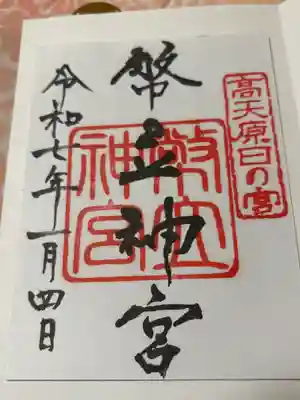 高天原日の宮
幣立神宮
幣立神宮
令和七年一月四日